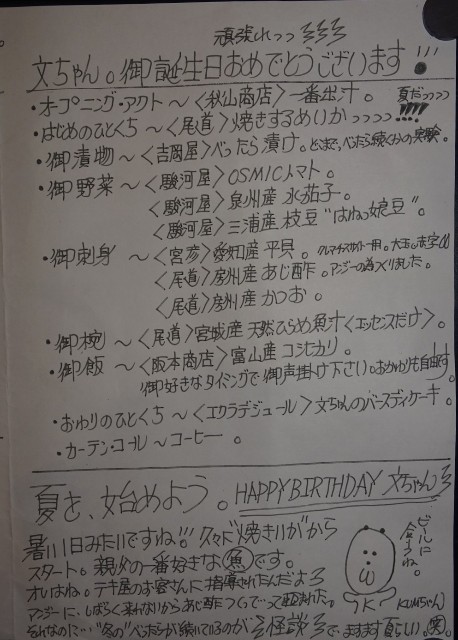 頑張れっっ
文ちゃん。御誕生日おめでとうございます!!!
・オープニング・アクト～〈秋山商店〉一番出汁。
夏だっっっ
・はじめのひとくち～〈尾道〉焼きするめいかっっっっ!!!!
・御漬物～〈吉岡屋〉べったら漬け。どこまで、べったら続くかの実験。
・御野菜～〈駿河屋〉OSMICトマト。
〈駿河屋〉泉州産 水茄子。
〈駿河屋〉三浦産 枝豆“はねっ娘豆”。
・御刺身～〈宮彦〉愛知産 平貝。
〈尾道〉房州産 あじ酢。アンジーの為につくりました。
〈尾道〉房州産 かつお。
・御椀～〈尾道〉宮城産 天然ひらめ魚汁〈エッセンスだけ〉。
・御飯～〈阪本商店〉富山産コシヒカリ。
御好きなタイミングで御声掛け下さい。おかわりも自由です。
・おわりのひとくち～〈エクラデジュール〉文ちゃんのバースディケーキ。
・カーテン・コール～コーヒー。
夏を、始めよう。HAPPY BIRTHDAY 文ちゃん
暑い1日みたいですね!!! 久々に“焼きいか”から
スタート。親父の一番好きな魚です。
オレはね。テキ屋のお客さんに指導されたんだよ
アンジーに、しばらく来れないからあじ酢つくって
なのに…“冬の”べったらが続いているのが怪談で、ますます涼しい。笑
ビールに合うね。
KUMちゃん